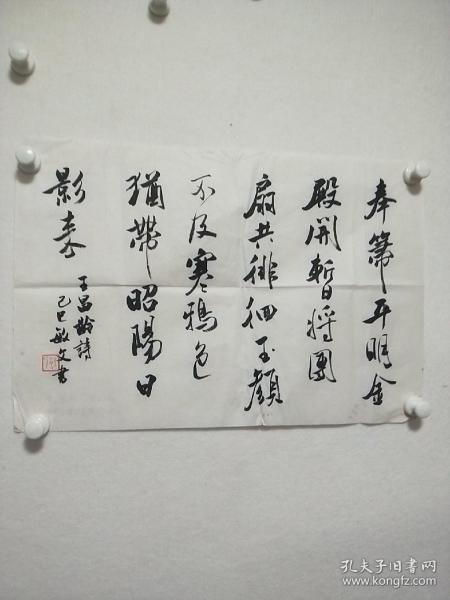 奉帚平明金
殿開暫將團
扇共徘徊玉顏
不及寒鴉色
猶帶昭陽日
影來
王昌齡詩
己巳敏文書
孔夫子旧书网
www.kongfz.com